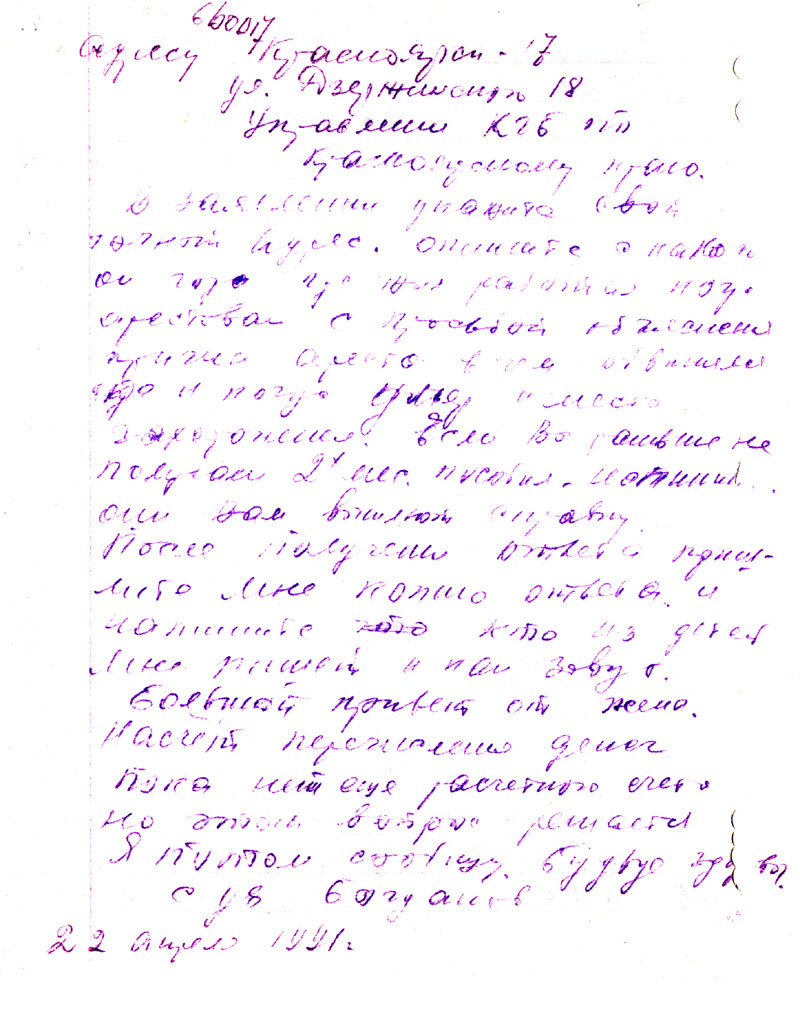 660017
адресу Красноярск - 17
ул. Дзержинского 18
Управлении КГБ по
Красноярскому краю.
В заявлении укажите свой
точный адрес. опишите с какого
он года где жил работал когда
арестован с просьбой объяснения
причин ареста в чем обвинялся
где и когда умер и место
захоронения. Если Вы раньше не
получали 2х мес. пособия - напишите
они вам вышлют справку
После получения ответа приш-
лите мне копию ответа и
напишите кто из детей
мне пишет и как зовут.
Большой привет от жены.
Насчёт перечисления денег
пока нет еще расчетного счета
но этот вопрос решается
Я потом сообщу. Будьте здоровы.
с ув Богданов
22 апреля 1991г.